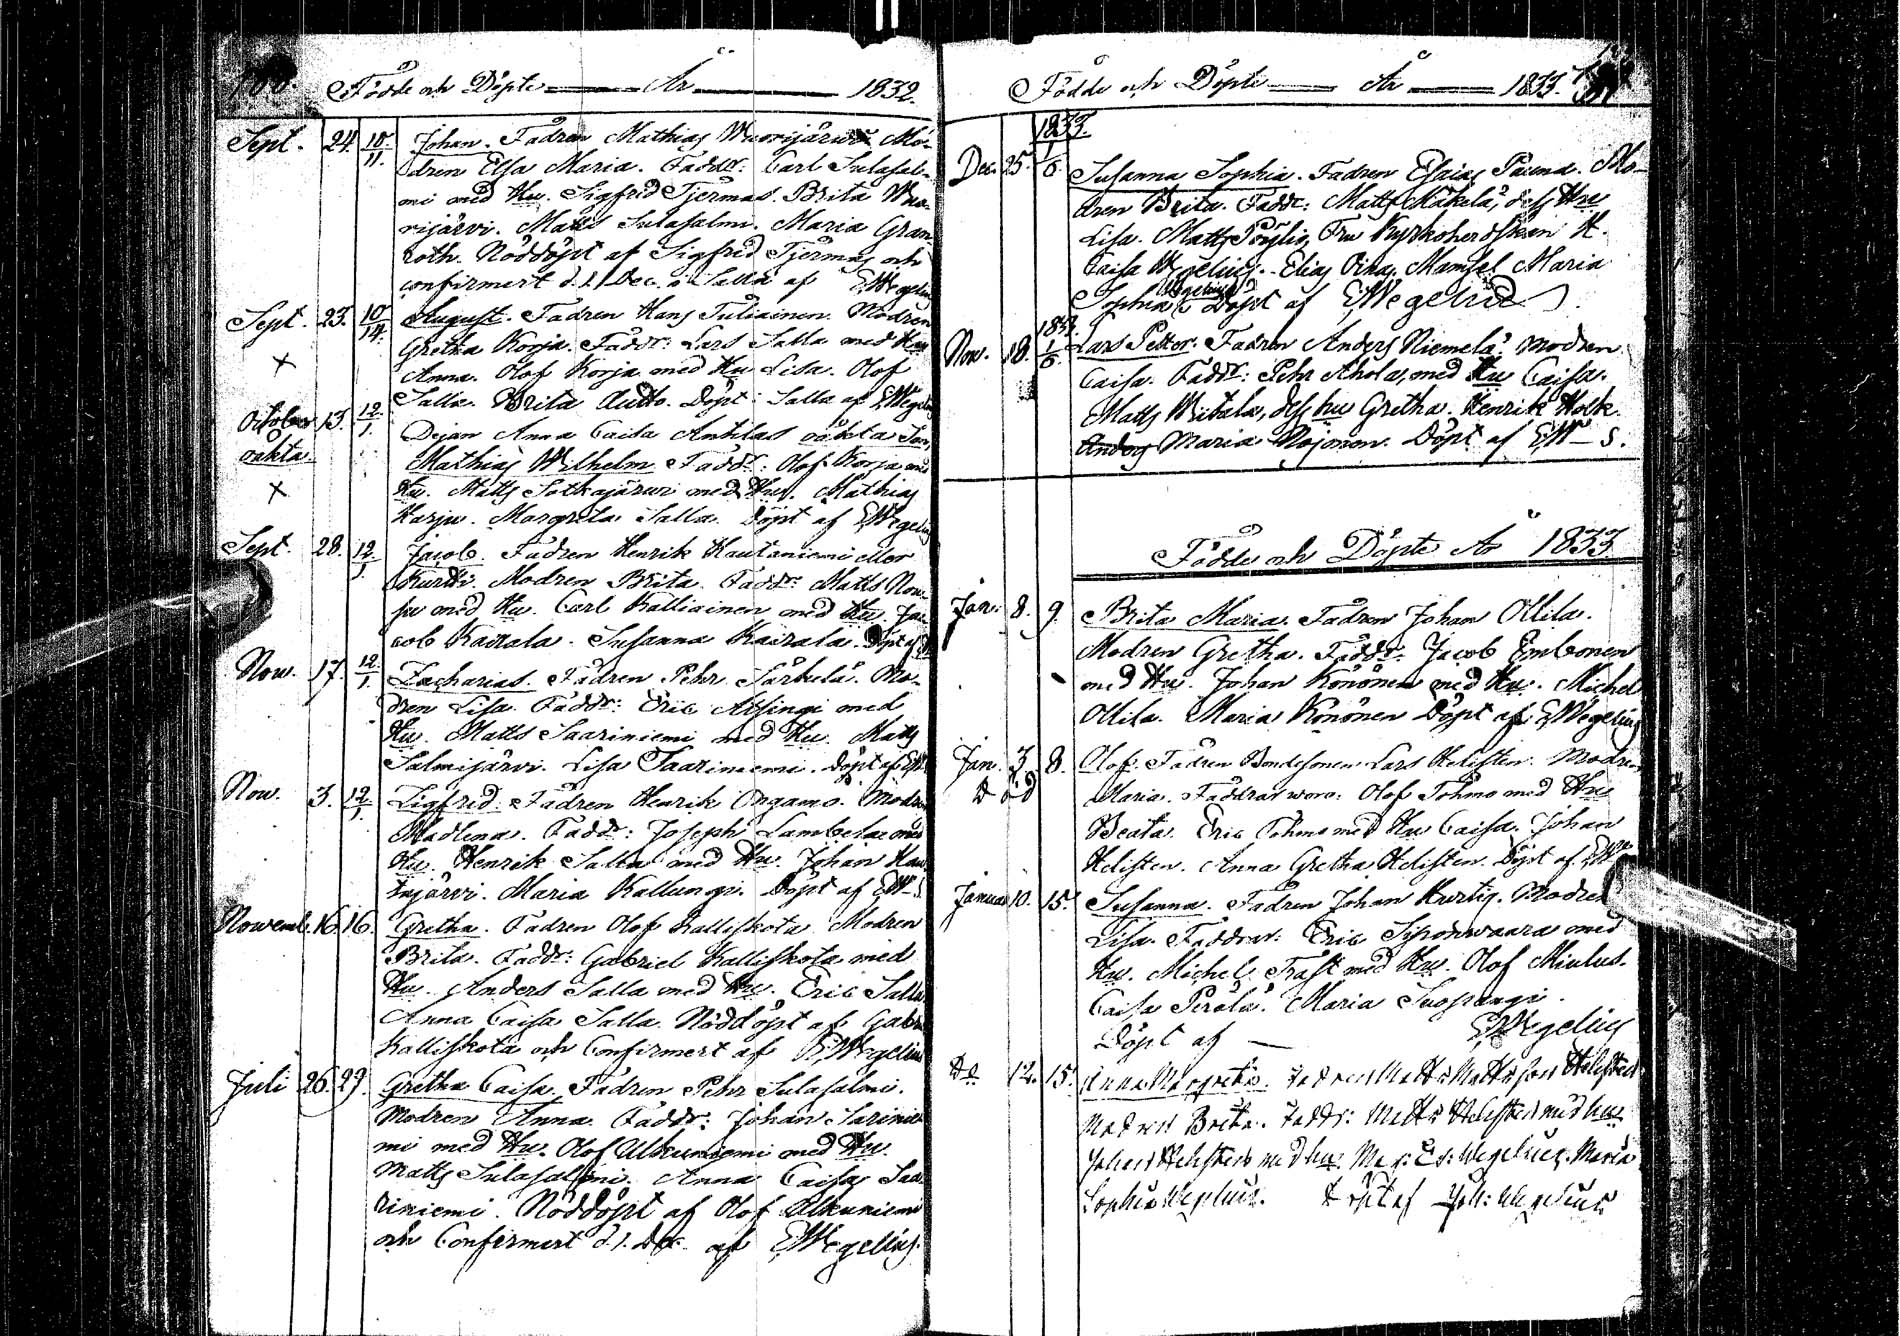 100. Födde och Döpte — År — 1832.
Sept. 24. 10/11. Johan. Fadren Mathias Wuorijärwi Mo-
dren Elsa Maria. Faddr: Carl Sulasal-
mi med Hu. Sigfrid Tjermas. Brita Wuo-
rijärvi. Matts Sulasalmi. Maria Gran-
roth. Nöddöpt af Sigfrid Tjermas och
confirmert d. 1. Dec. i Salla af EWegelius
Sept. 23. 10/14. August. Fadren Hans Tuliainen. Modren
Gretha Korja. Faddr: Lars Salla med Hu
× Anna. Olof Korja med Hu Lisa. Olof
Salla. Brita Autto. Döpt i Salla af EWegelius
October 13. 12/1. Dejan Anna Caisa Antilas oäkta Son,
oäkta. Mathias Wilhelm. Faddr: Olof Korja med
× Hu. Matts Sotkajärwi med Hu. Mathias
Harju. Margreta Salla. Döpt af EWegelius
Sept. 28. 12/1. Jacob. Fadren Henrik Hautaniemi eller
Kurtti. Modren Brita. Faddr: Matts Nou-
su med Hu. Carl Kalliainen med Hu. Ja-
cob Kairala. Susanna Kairala. Döpt af
Now. 17. 12/1. Zacharias. Fadren Pehr Särkelä. Mo-
dren Lisa. Faddr: Eric Alsingi med
Hu. Matts Saariniemi med Hu. Matts
Salmijärvi. Lisa Saariniemi. Döpt af EW
Now. 3. 12/1. Sigfrid. Fadren Henrik Ongamo. Modren
Madlena. Faddr: Joseph Lambela med
Hu. Henrik Salla med Hu. Johan Hau-
tajärvi. Maria Kallungi. Döpt af EW—s
Novemb. 16. 16. Gretha. Fadren Olof Kalliskota Modren
Brita. Faddr: Gabriel Kalliskota med
Hu. Anders Salla med Hu. Eric Salla
Anna Caisa Salla. Nöddöpt af Gabr.
Kalliskota och Confirmert af EWegelius
Juli 26. 29. Gretha Caisa. Fadren Pehr Sulasalmi.
Modren Anna. Faddr: Johan Sarinie-
mi med Hu. Olof Alkuniemi med Hu.
Matts Sulasalmi. Anna Caisa Saa-
riniemi. Nöddöpt af Olof Alkuniemi
och Confirmert d. 1. Dec. af EWegelius.
Födde och Döpte — År — 1833.
1833.
Dec. 25. 1/6. Susanna Sophia. Fadren Esaias Pauna. Mo-
dren Brita. Faddr: Matts Mäkelä, dess Hu
Lisa. Matts Pöyliö, Fru Kyrkoherdskan H.
Caisa Wegelius. Elias Oinas. Mamsel Maria
Sophia Wegelius Döpt af EWegelius
1833.
Now. 18. 1/6. Lars Petter. Fadren Anders Niemelä. Modren
Caisa. Faddr: Pehr Ahola, med Hu Caisa.
Matts Witala, dess hu Gretha. Henrik Holk.
Anders Maria Nojonen. Döpt af EW—s.
Födde och Döpte År 1833
Jan. 8. 9. Brita Maria. Fadren Johan Ollila.
Modren Gretha. Faddr. Jacob Imbonen
med Hu. Johan Könönen med Hu. Michel
Ollila. Maria Könönen Döpt af EWegelius
Jan. 3. 8. Olof. Fadren Bondesonen Lars Helisten. Modren
Död Maria. Faddrar woro: Olof Tohmo med Hu
Beata. Eric Tohmo med Hu Caisa. Johan
Helisten. Anna Gretha Helisten. Döpt af EW
Januar 10. 15. Susanna. Fadren Johan Kurtig. Modren
Lisa. Faddrar: Eric Siponwaara med
Hu. Michel Trast med Hu. Olof Miulus.
Caisa Perälä. Maria Suopangi.
Döpt af — EWegelius
Do 12. 15. Anna Margreta. Fadren Matts Mattsson Helisten
Modren Brita. Faddr: Matts Helisten med hu
Johan Helisten med hu. Mag: Ed: Wegelius. Maria
Sophia Wegelius. Döpt af Joh: Wegelius